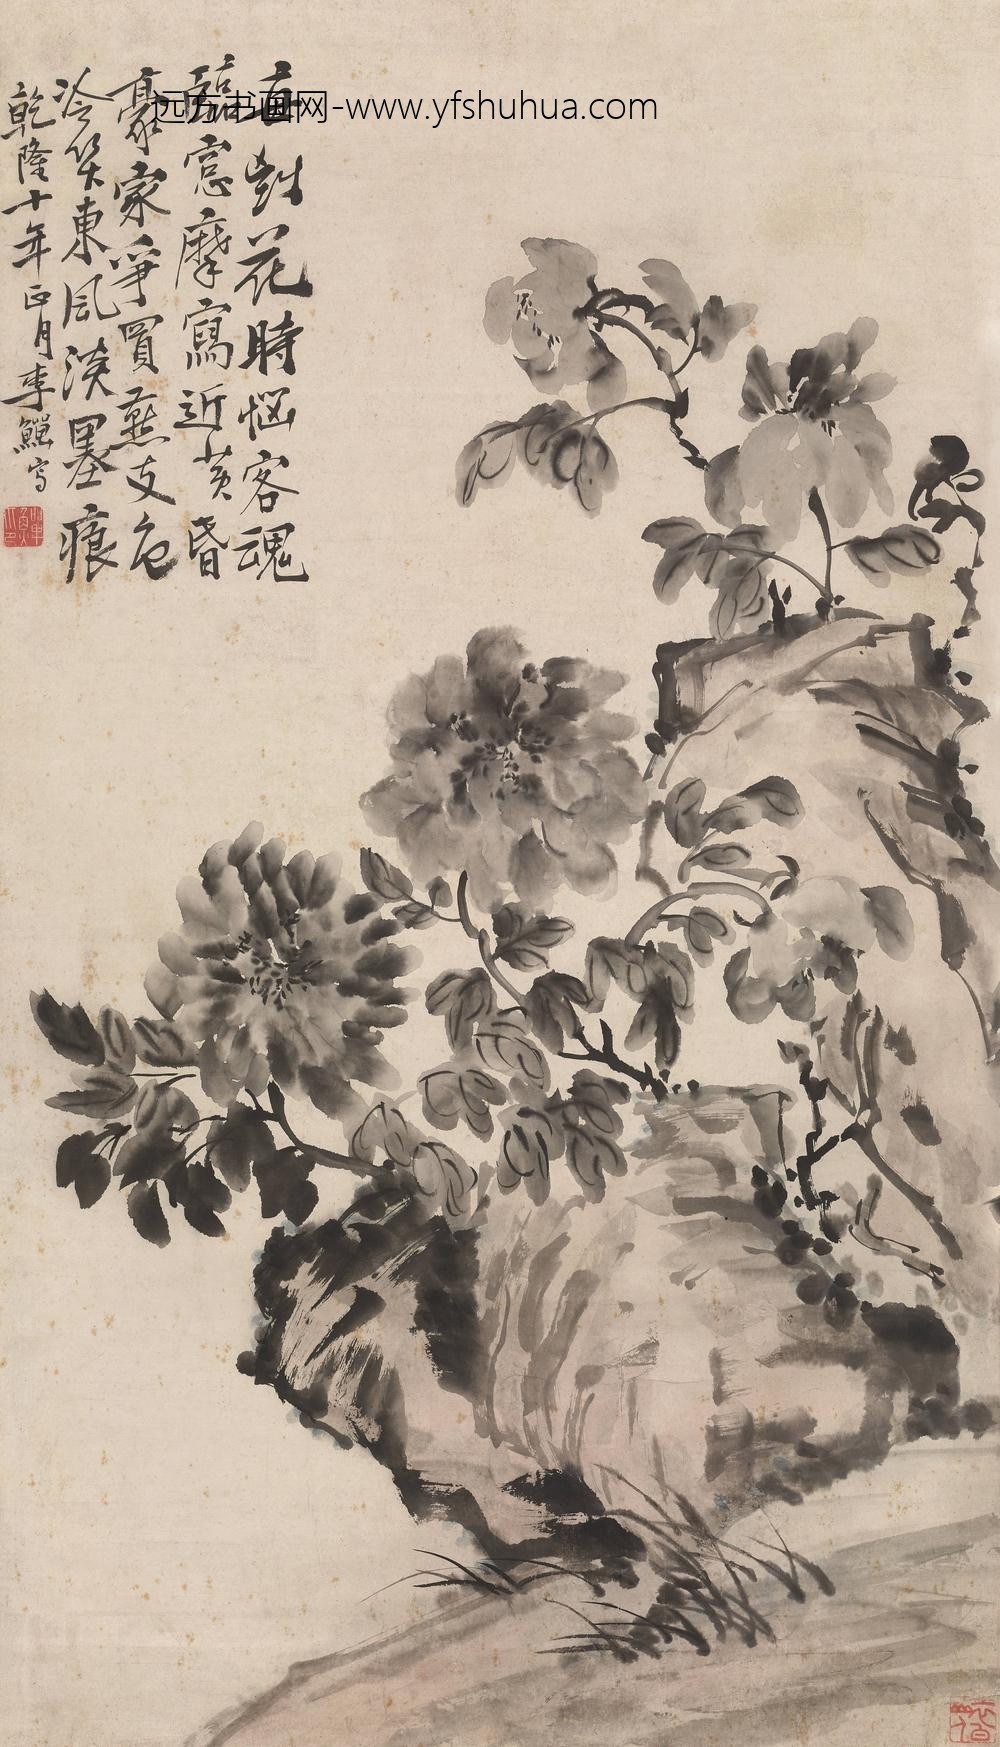 直對花時惱客魂
臨窓摩寫近黃昏
豪家爭買燕支色
冷笑東風淡墨痕
乾隆十年正月李鱓寫
远方书画网-www.yfshuhua.com